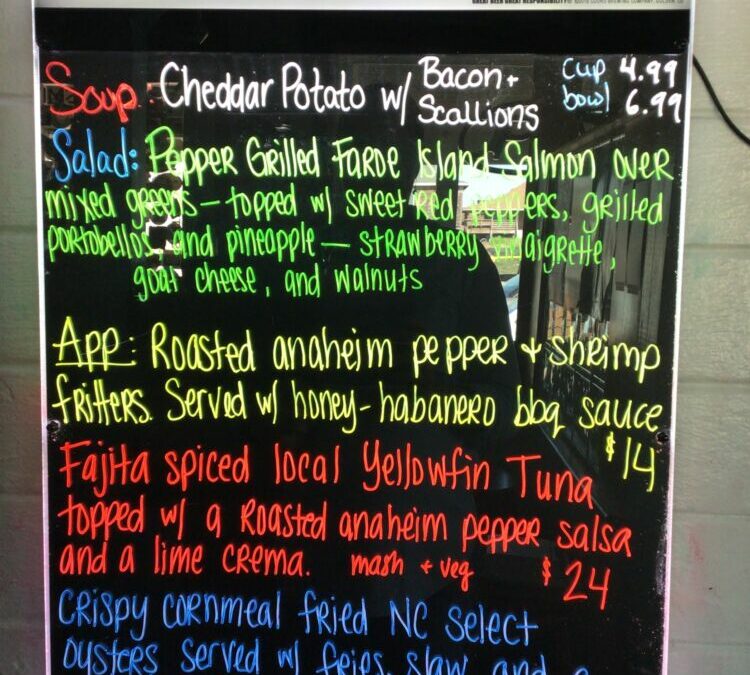 GREAT BEER GREAT RESPONSIBILITY
Soup: Cheddar Potato w/ Bacon + Scallions cup 4.99 bowl 6.99
Salad: Pepper Grilled Faroe Island Salmon over
mixed greens – topped w/ sweet red peppers, grilled
portobellos, and pineapple – strawberry vinaigrette,
goat cheese, and walnuts
App: Roasted anaheim pepper + shrimp
fritters. Served w/ honey-habanero bbq sauce
$14
Fajita spiced local Yellowfin Tuna
topped w/ a Roasted anaheim pepper salsa
and a lime crema. mash + veg $24
Crispy cornmeal fried NC Select
oysters served w/ fries, slaw and a